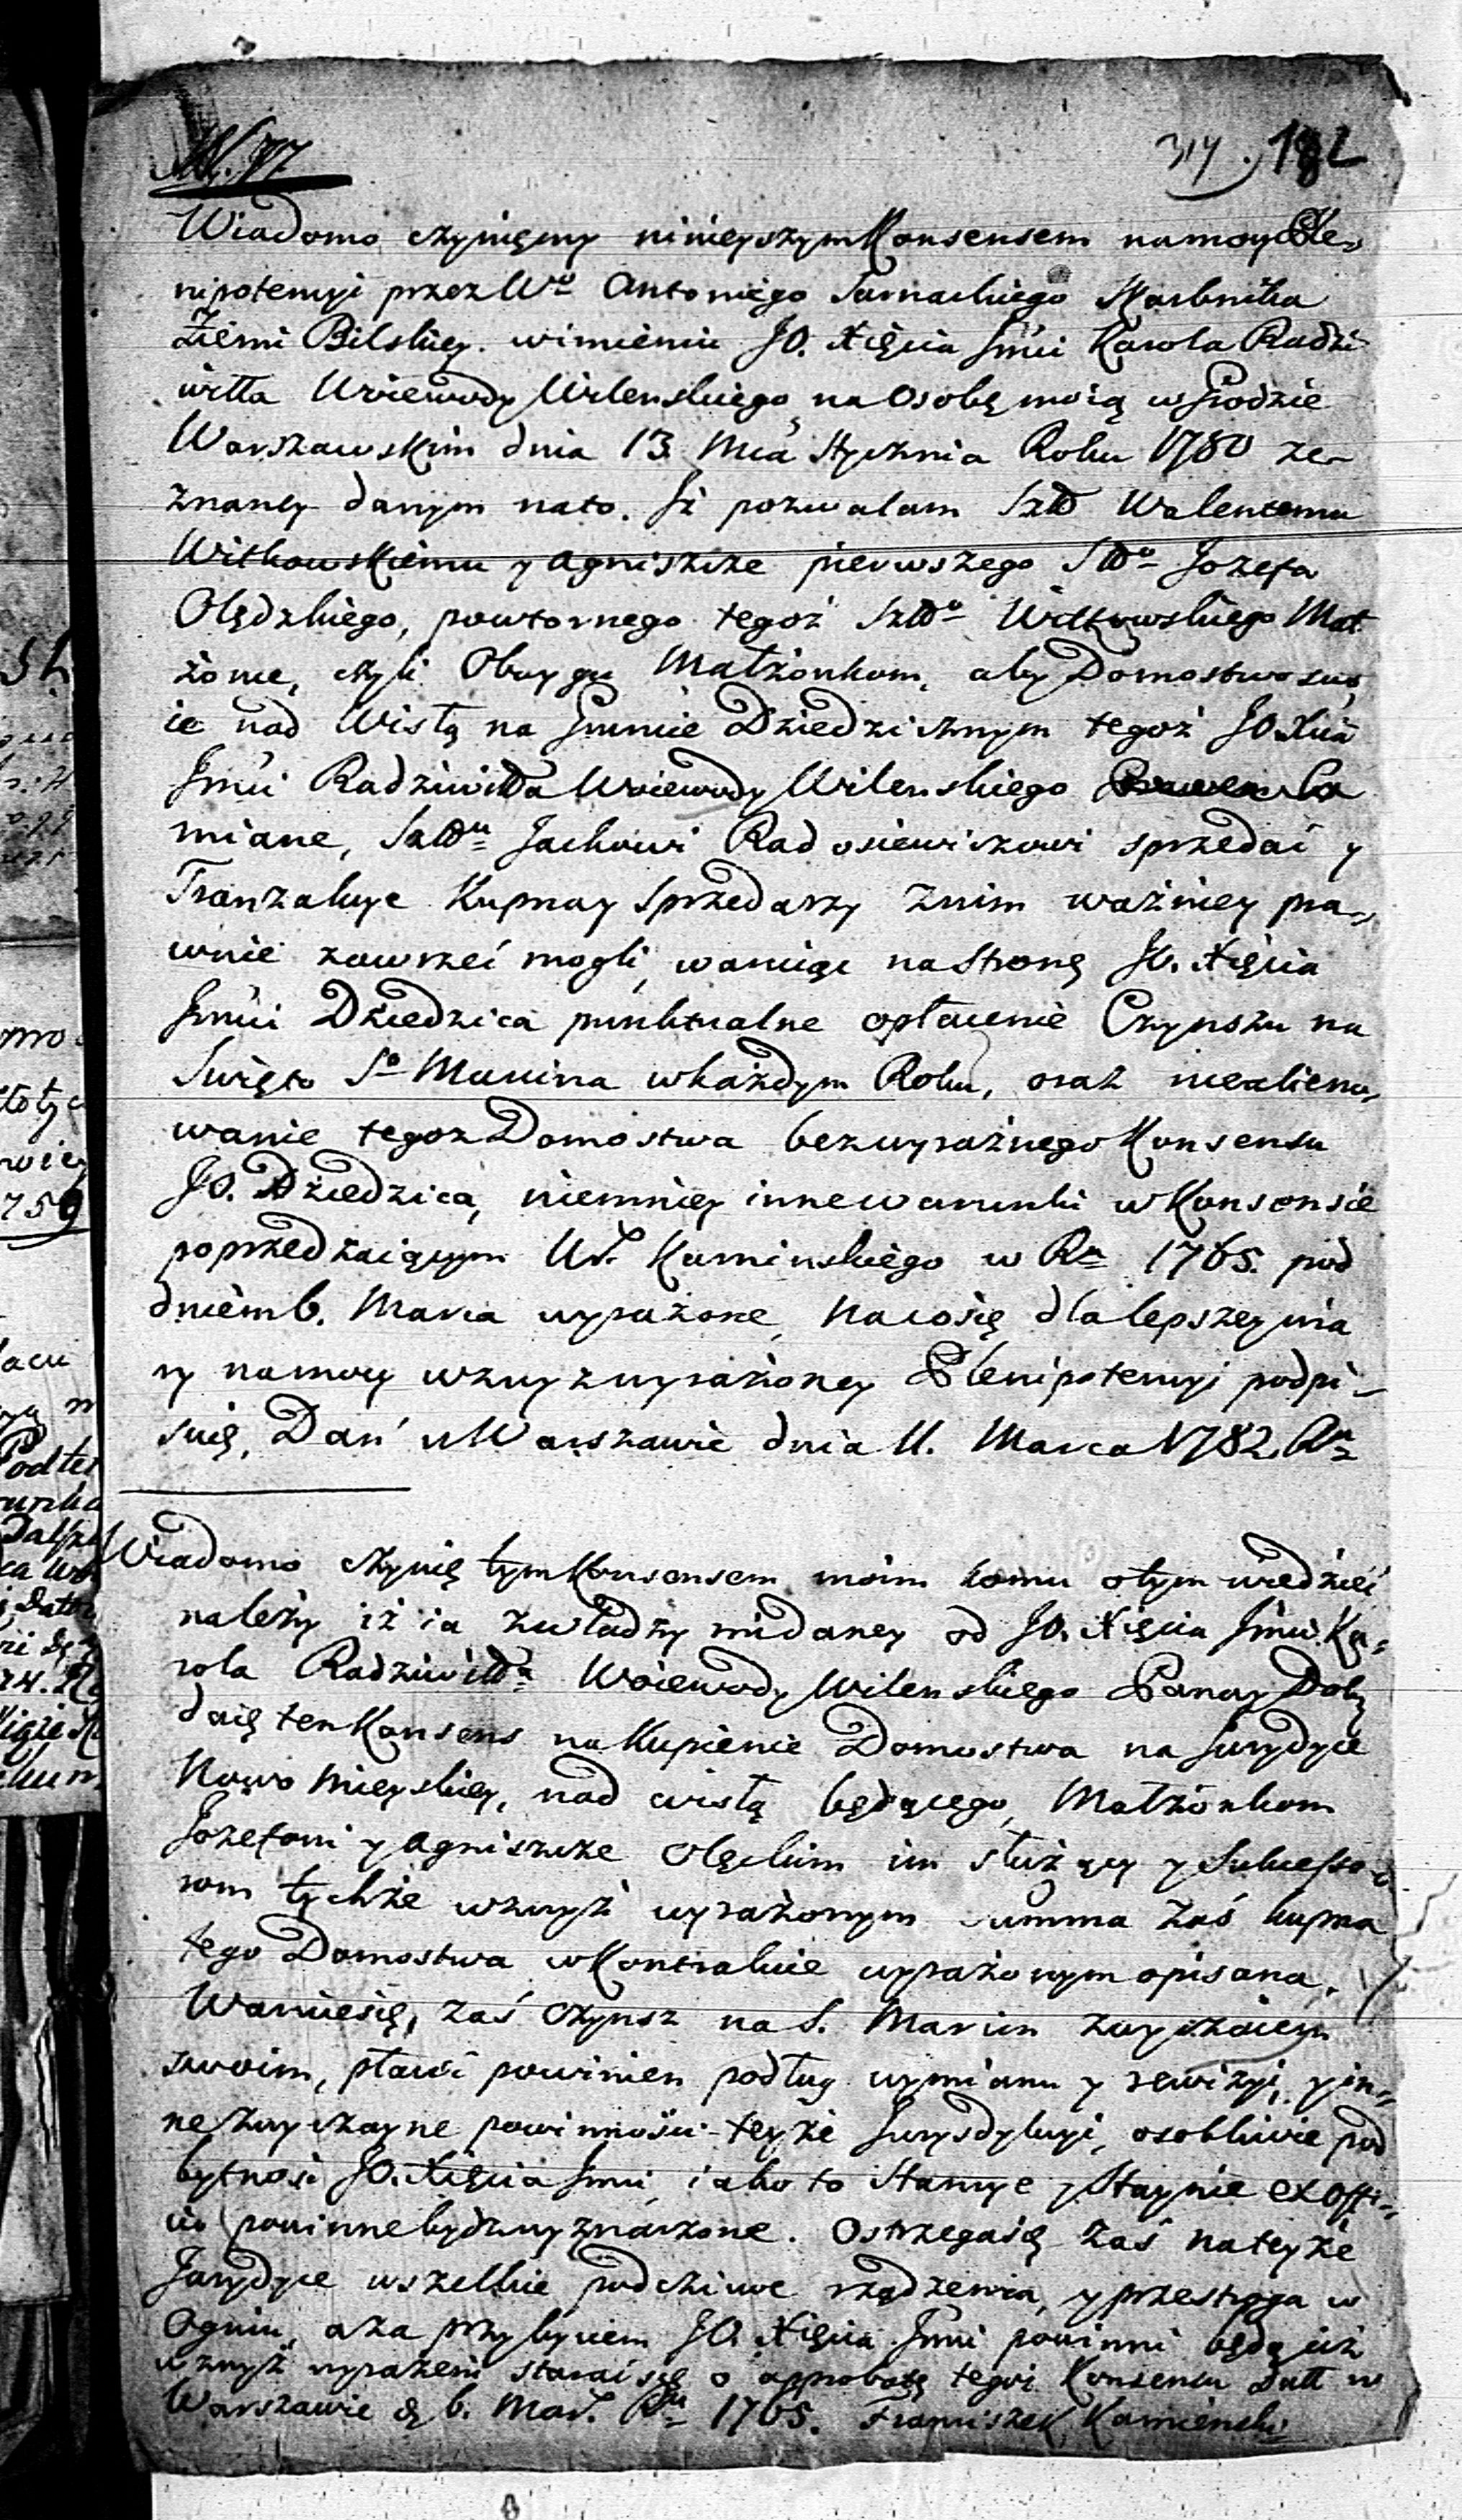 314. 182
Wiadomo czynięmy ninieyszym Konsensem namocy Ple„
nipotencyi przez Wo Antoniego Sarnackiego Skarbnika
Ziemi Bilskiey. wimieniu JO. Xięcia Jmci Karola Radzi
wiłła Woiewody Wilenskiego na Osobę moią w Grodzie
Warszawskim dnia 13. Mca Stycznia Roku 1780 ze-
znaney danym nato. Iż pozwalam Szltt Walentemu
Witkowskiemu y Agniszce pierwszego Stto Jozefa
Olędzkiego, powtornego tegoż Szltto Witkowskiego Mał
żonce, czyli Obuygu Małżonkom, aby Domostwo swo
ie nad Wisłą na Gruncie Dziedzicznym tegoż JO. Xcia
Jmci Radziwiłła Woiewody Wilenskiego
miane, Szlttu Jachowi Radosiewiczowi sprzedać y
Tranzakcye Kupna y Sprzedarzy znim ważniey pra„
wnie zawrzeć mogli, waruiąc na Stronę JO. Xięcia
Jmci Dziedzica punktualne opłacenie Czynszu na
Swięto So Marcina w każdym Roku, oraz niealieno„
wanie tegoz Domostwa bez wyraźnego Konsensu
JO. Dziedzica, niemniey inne warunki w Konsensie
poprzedzaiącym Ur. Kaminskiego w Ru 1765. pod
dniem 6. Marca wyrażone, Naco się dla lepszey wia
ry namocy wzwyz wyrażoney Plenipotencyi podpi-
suię, Dan w Warszawie dnia 11. Marca 1782. Ru
Wiadomo czynię tym Konsensem moim komu otym wiedzieć
należy iż ia z władzy mi daney od JO. Xięcia Jmci Ka„
rola Radziwiłła Woiewody Wilenskiego Pana y Dobr
daię ten Konsens na Kupienie Domostwa na Jurydyce
Nowo Mieyskiey, nad wisłą będącego, Małżonkom
Jozefowi y Agniszce Olęckim im służący y Sukcesso„
rom tychże wzwyż wyrażonym Summa Zaś kupna
tego Domostwa w Kontrakcie wyrażonym opisana.
Waruie się, zaś Czynsz na S. Marcin zwyczaiem
swoim, płacić powinien podług wymiaru y rewizyi, y in„
ne zwyczayne powinności teyże Jurysdykcyi, osobliwie pod
bytność JO. Xięcia Jmci iako to Stancye y Staynie ex offi„
cio powinne bydz wyznaczone. Ostrzega się zaś na teyże
Jurydyce wszelkie podcziwe rządzenia, y przestroga w
Ogniu, a za przybyciem JO. Xięcia Jmci powinni będą iuż
wzwyż wyrażeni starać się o approbatę tegoż Konsensu Datt w
Warszawie d. 6. Mar. Ru 1765. Franciszek Kamienski